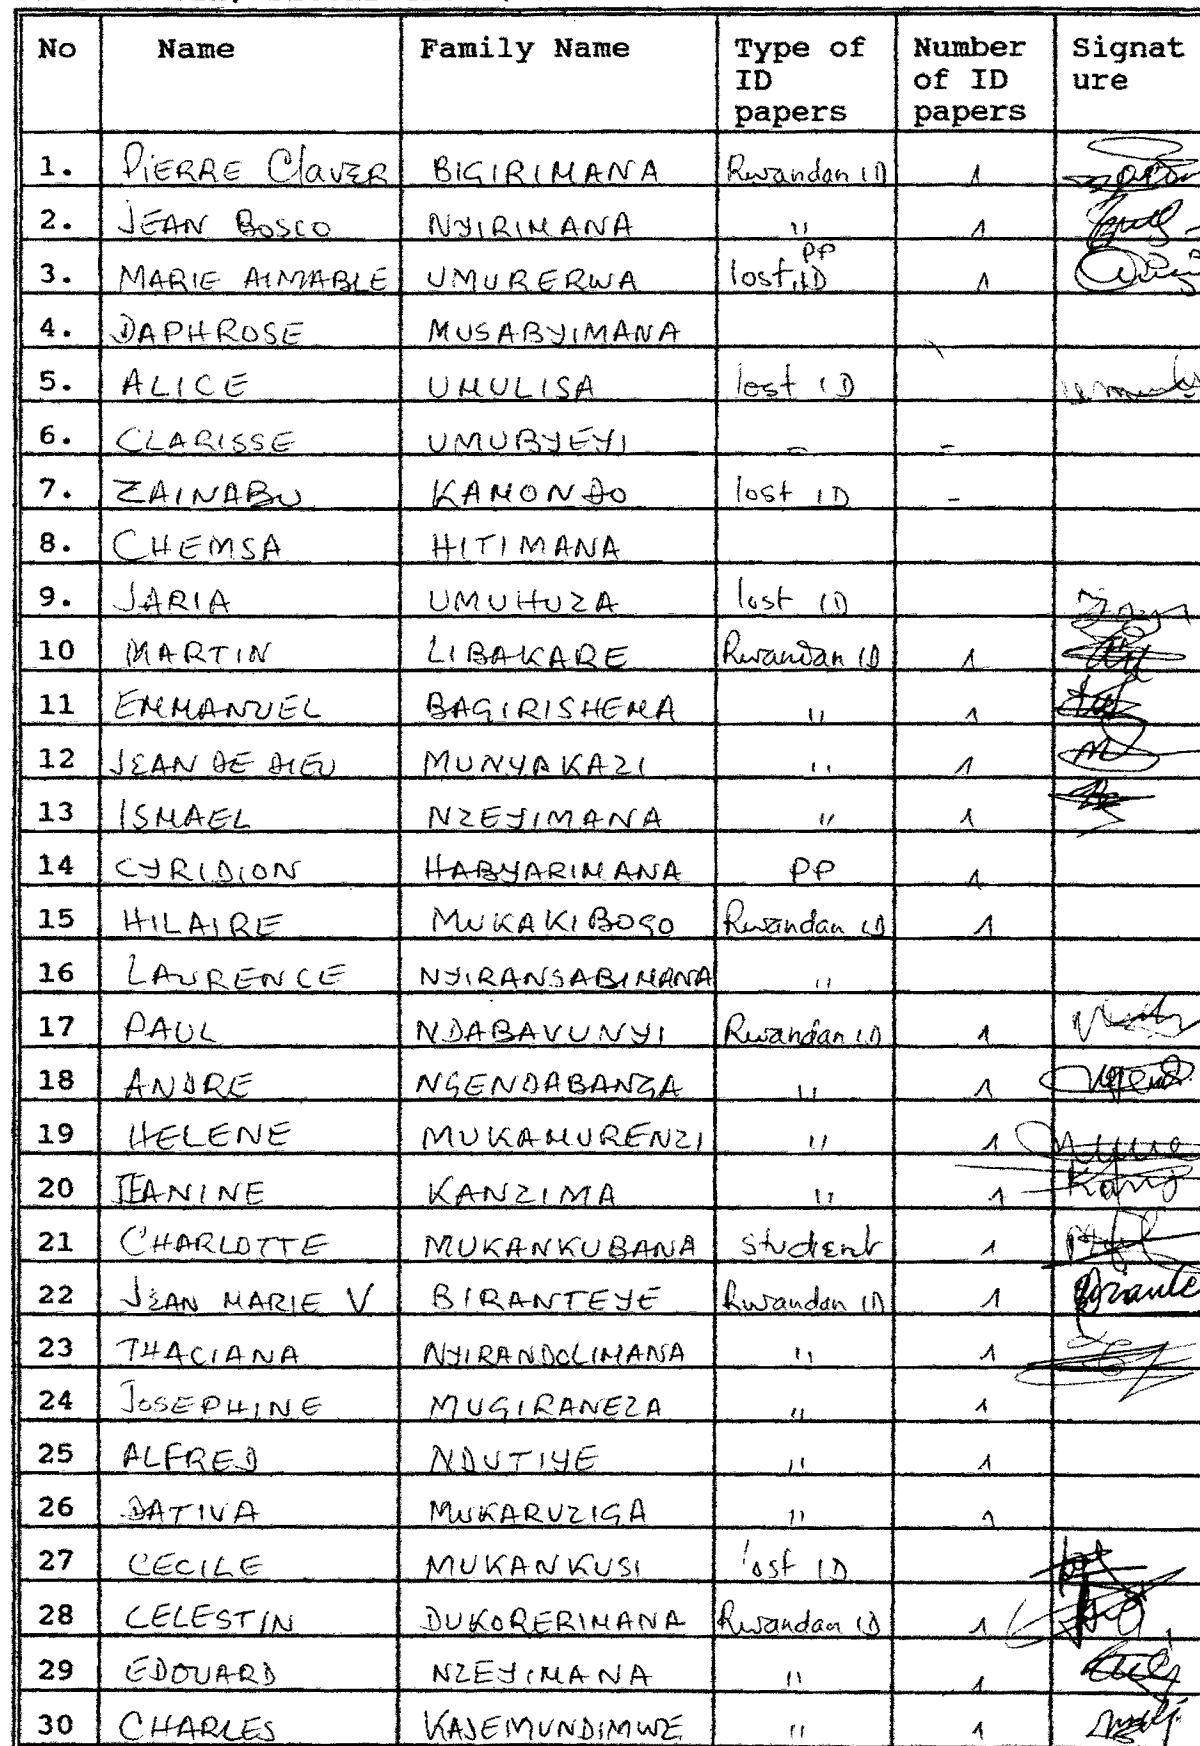 No Name Family Name Type of ID papers Number of ID papers Signat ure
1. PIERRE Claver BIGIRIMANA Rwandan ID 1
2. JEAN Bosco NYIRIMANA " 1
3. MARIE AIMABLE UMURERWA lost ID PP 1
4. DAPHROSE MUSABYIMANA
5. ALICE UMULISA lost ID
6. CLARISSE UMUBYEYI - -
7. ZAINABU KAMONDO lost ID -
8. CHEMSA HITIMANA
9. JARIA UMUHUZA lost ID
10 MARTIN LIBAKARE Rwandan ID 1
11 EMMANUEL BAGIRISHEMA " 1
12 JEAN DE DIEU MUNYAKAZI " 1
13 ISMAEL NZEYIMANA " 1
14 CYRIDION HABYARIMANA PP 1
15 HILAIRE MUKAKIBOGO Rwandan ID 1
16 LAURENCE NYIRANSABIMANA "
17 PAUL NDABAVUNYI Rwandan ID 1
18 ANDRE NGENDABANGA " 1
19 HELENE MUKAMURENZI " 1
20 JEANINE KANZIMA " 1
21 CHARLOTTE MUKANKUBANA student 1
22 JEAN MARIE V BIRANTEYE Rwandan ID 1
23 THACIANA NYIRANDOLIMANA " 1
24 JOSEPHINE MUGIRANEZA " 1
25 ALFRED NDUTIYE " 1
26 DATIVA MUKARUZIGA " 1
27 CECILE MUKANKUSI lost ID
28 CELESTIN DUKORERIMANA Rwandan ID 1
29 EDOUARD NZEYIMANA " 1
30 CHARLES KAJEMUNDIMWE " 1